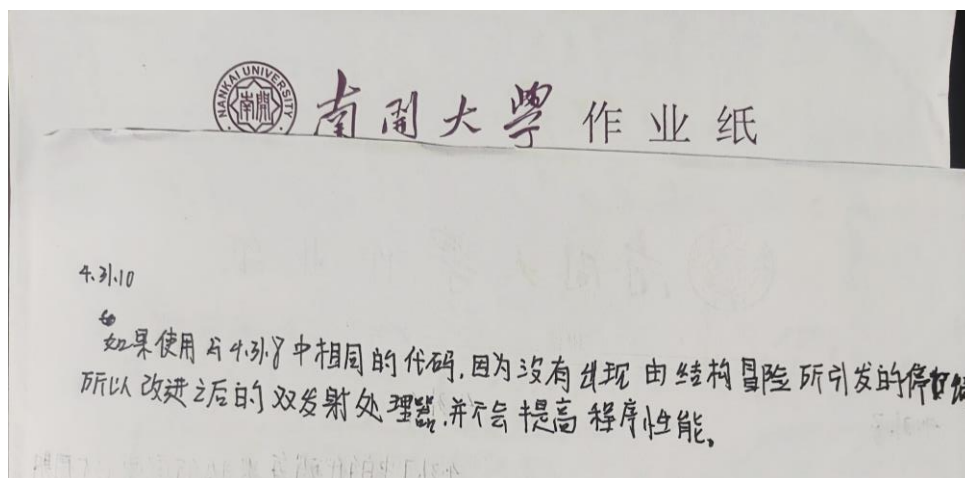 NANKAI UNIVERSITY
南開
南開大學 作业纸
4.31.10
如果使用与4.31.8中相同的代码,因为没有出现由结构冒险所引发的停
所以改进之后的双发射处理器,并不会提高程序性能。